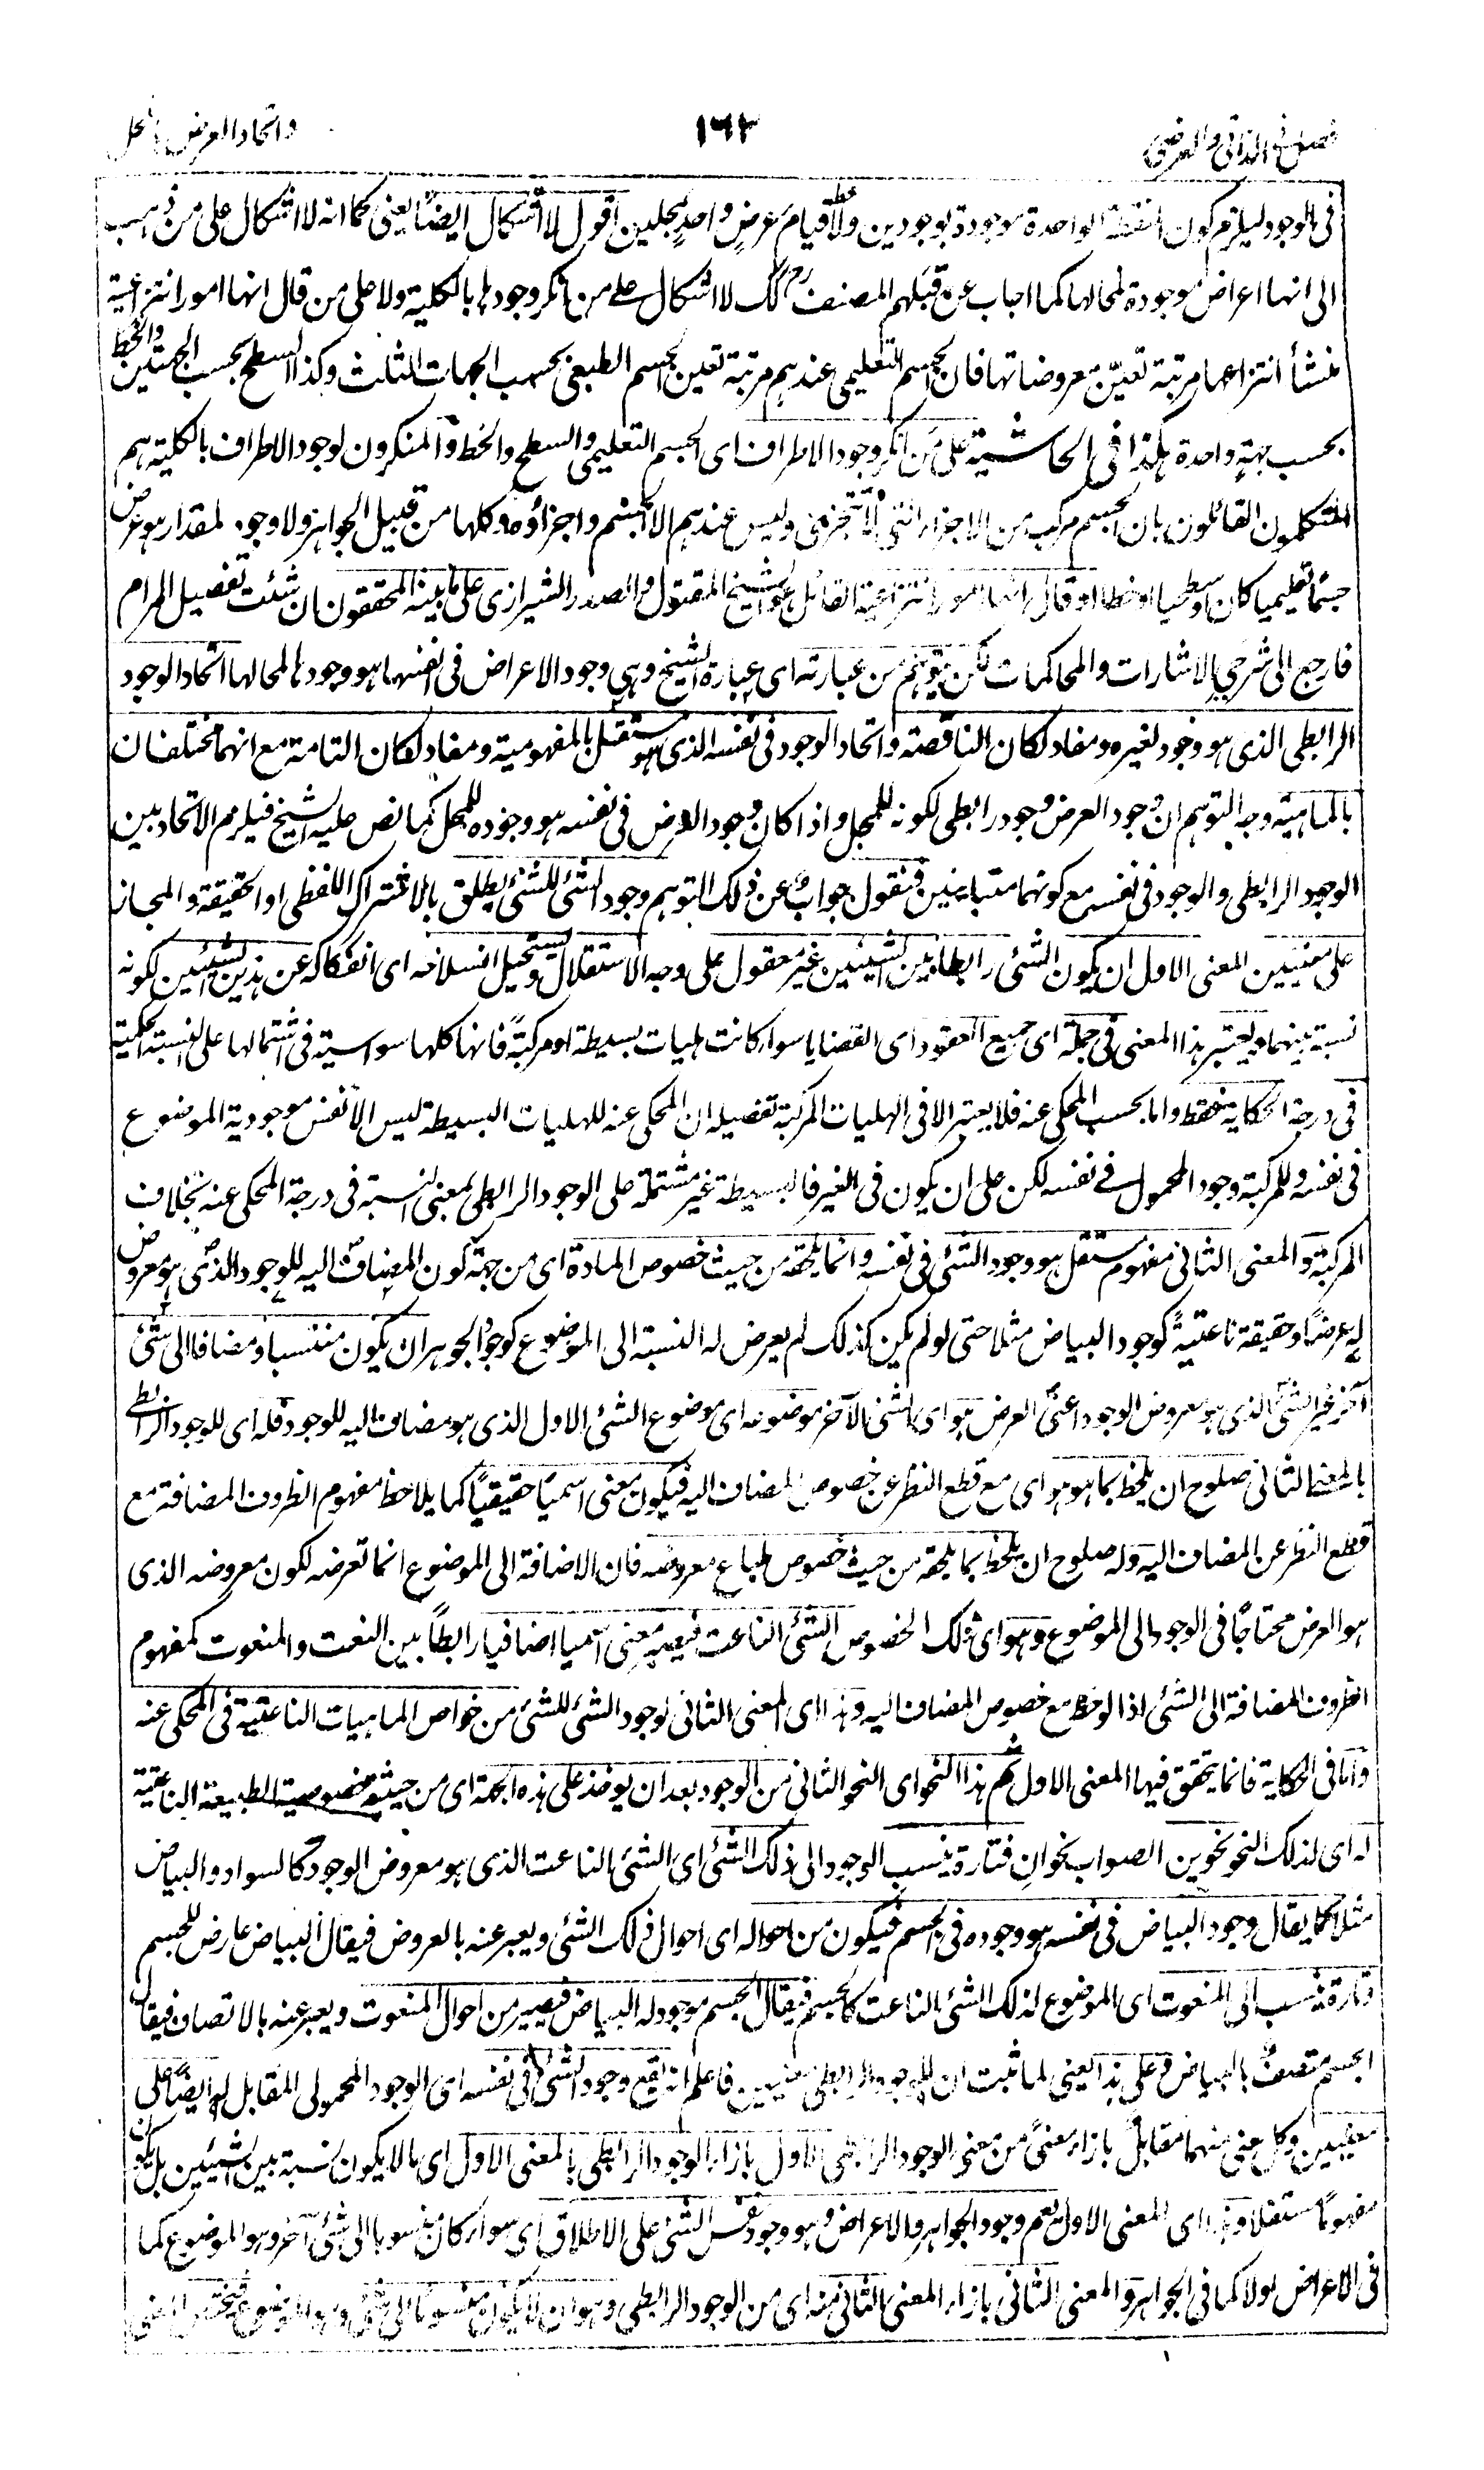 فصل فی الذاتی والعرضی
١٦٢
واتحاد العرض بالمحل
فی الوجود لیلزم کون النقطة الواحدة موجودة بوجودین ولا قیام عرضٍ واحدٍ بمحلین اقول لا اشکال ایضًا یعنی کما انه لا اشکال علی من ذهب
الی انها اعراض موجودة لمحالها کما اجاب عن قبلهم المصنف رح کک لا اشکال علے من انکر وجودها بالکلیة ولا علی من قال انها امور انتزاعیة
منشأ انتزاعها مرتبة تعیّن معروضاتها فان الجسم التعلیمی عندهم مرتبة تعین الجسم الطبعی بحسب الجهات الثلث وکذا السطح بحسب الجهتین والخط
بحسب جهةٍ واحدة هکذا فی الحاشیة علی من انکر وجود الاطراف ای الجسم التعلیمی والسطح والخط والمنکرون لوجود الاطراف بالکلیة هم
المتکلمون القائلون بان الجسم مرکب من الاجزاء التی لا تتجزی ولیس عندهم الا الجسم واجزاؤه وکلها من قبیل الجواهر ولا وجود لمقدار هو عرض
جسمًا تعلیمیا کان او سطحیا او خطا او قال انها امور انتزاعیة القائل هو الشیخ المقتول والصدر الشیرازی علی ما بینه المحققون ان شئت تفصیل المرام
فارجع الی شرحی الاشارات والمحاکمات لکن یتوهم من عبارته ای عبارة الشیخ وهی وجود الاعراض فی انفسها هو وجودها لمحالها اتحاد الوجود
الرابطی الذی هو وجود لغیره ومفاد لکان الناقصة واتحاد الوجود فی نفسه الذی هو مستقل بالمفهومیة ومفاد لکان التامة مع انهما مختلفان
بالماهیة وجه التوهم ان وجود العرض وجود رابطی لکونه للمحل واذا کان وجود العرض فی نفسه هو وجوده للمحل کما نص علیه الشیخ فیلزم الاتحاد بین
الوجود الرابطی والوجود فی نفسه مع کونهما متباینین فنقول جوابٌ عن ذلک التوهم وجود الشئ للشئ یطلق بالاشتراک اللفظی او الحقیقة والمجاز
علی معنیین المعنی الاول ان یکون الشئ رابطا بین الشیئین غیر معقول علی وجه الاستقلال ویستحیل انسلاخه ای انفکاکه عن هذین الشیئین لکونه
نسبة بینهما ویعتبر هذا المعنی فی جملة ای جمیع العقود ای القضایا سواء کانت هلیات بسیطة او مرکبةً فانها کلها سواسیة فی اشتمالها علی النسبة الحکمیة
فی درجة الحکایة فقط واما بحسب المحکی عنه فلا یعتبر الا فی الهلیات المرکبة تفصیله ان المحکی عنه للهلیات البسیطة لیس الا نفس موجودیة الموضوع
فی نفسه وللمرکبة وجود المحمول فے نفسه لکن علی ان یکون فی الغیر فالبسیطة غیر مشتملة علی الوجود الرابطی بمعنی النسبة فی درجة المحکی عنه بخلاف
المرکبة والمعنی الثانی مفهوم مستقل هو وجود الشئ فی نفسه وانما یلحقه من حیث خصوص المادة ای من جهة کون المضاف الیه للوجود الذی هو معروض
له عرضًا وحقیقة ناعتیةً کوجود البیاض مثلا حتی لو لم یکن کذلک لم یعرض له النسبة الی الموضوع کوجود الجوهر ان یکون منتسبا ومضافا الی شئ
آخر غیر الشئ الذی هو معروض الوجود اعنی العرض هو ای الشئ الآخر موضوعه ای موضوع الشئ الاول الذی هو مضاف الیه للوجود فله ای للوجود الرابطے
بالمعنی الثانی صلوح ان یلحظ بما هو هو ای مع قطع النظر عن خصوص المضاف الیه فیکون معنی اسمیًا حقیقیًا کما یلاحظ مفهوم الظروف المضافة مع
قطع النظر عن المضاف الیه وله صلوح ان یلحظ بما یلحقه من حیث خصوص طباع معروضه فان الاضافة الی الموضوع انما تعرضه لکون معروضه الذی
هو العرض محتاجًا فی الوجود الی الموضوع وهو ای ذلک الخصوص الشئ الناعت فیصیر معنی اسمیا اضافیا رابطًا بین النعت والمنعوت کمفهوم
الظروف المضافة الی الشئ اذا لوحظ مع خصوص المضاف الیه وهذا ای المعنی الثانی لوجود الشئ للشئ من خواص الماهیات الناعتیة فی المحکی عنه
واما فی الحکایة فانما یتحقق فیها المعنی الاول ثم هذا النحو ای النحو الثانی من الوجود بعد ان یوخذ علی هذه الجهة ای من حیث خصوصیة الطبیعة الناعتیة
له ای لذلک النحو نحوین الصواب نحوان فتارة ینسب الوجود الی ذلک الشئ ای الشئ الناعت الذی هو معروض الوجود کالسواد والبیاض
مثلا کما یقال وجود البیاض فی نفسه هو وجوده فی الجسم فیکون من احواله ای احوال ذلک الشئ ویعبر عنه بالعروض فیقال البیاض عارض للجسم
وتارة ینسب الی المنعوت ای الموضوع لذلک الشئ الناعت کالجسم فیقال الجسم موجود له البیاض فیصیر من احوال المنعوت ویعبر عنه بالاتصاف فیقال
الجسم متصفٌ بالبیاض وعلی هذا یعنی لما ثبت ان للوجود الرابطی معنیین فاعلم انه یقع وجود الشئ فی نفسه ای الوجود المحمولی المقابل له ایضًا علی
معنیین وکل معنی منهما مقابلٌ بازاء معنیً من معنی الوجود الرابطی الاول بازاء الوجود الرابطی بالمعنی الاول ای ما لا یکون نسبة بین الشیئین بل یکون
مفهومًا مستقلا وهذا ای المعنی الاول یعم وجود الجواهر والاعراض وهو وجود نفس الشئ علی الاطلاق ای سواء کان منسوبا الی شئ آخر وهو الموضوع کما
فی الاعراض اولا کما فی الجواهر والمعنی الثانی بازاء المعنی الثانی منه ای من الوجود الرابطی وهو ان لا یکون منسوبًا الی شئ وهو الموضوع فیختص